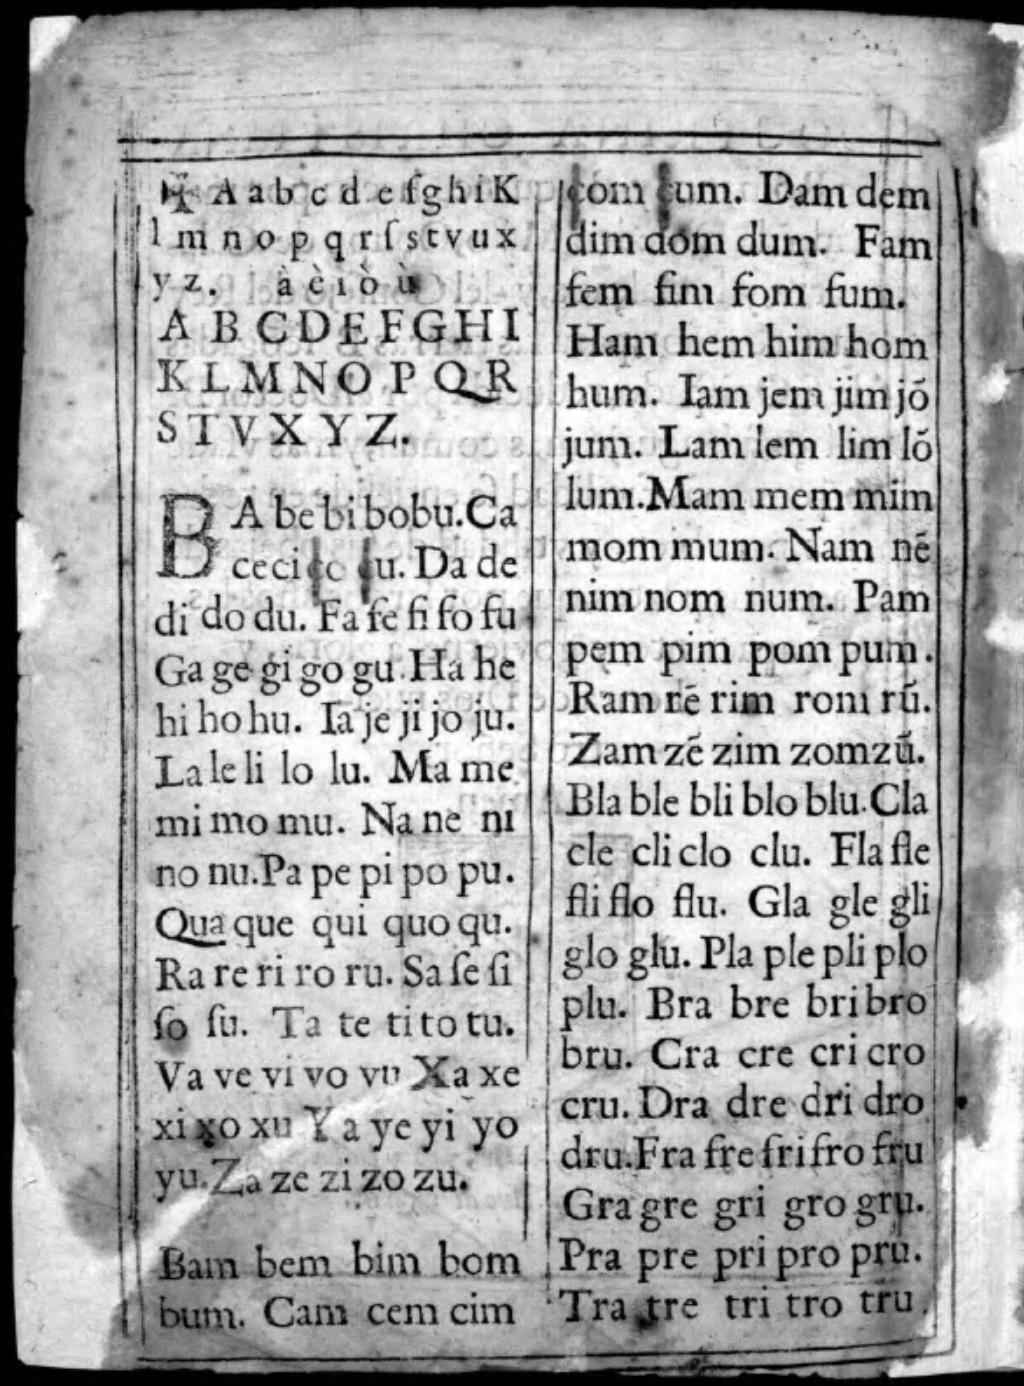 ✠ A a b c d e f g h i K
l m n o p q r ſ s t v u x
y z. à è ì ò ù
A B C D E F G H I
K L M N O P Q R
S T V X Y Z.
BA be bi bo bu. Ca
ce ci co cu. Da de
di do du. Fa fe fi fo fu
Ga ge gi go gu. Ha he
hi ho hu. Ia je ji jo ju.
La le li lo lu. Ma me
mi mo mu. Na ne ni
no nu. Pa pe pi po pu.
Qua que qui quo qu.
Ra re ri ro ru. Sa ſe ſi
ſo ſu. Ta te ti to tu.
Va ve vi vo vu Xa xe
xi xo xu Ya ye yi yo
yu. Za ze zi zo zu.
Bam bem bim bom
bum. Cam cem cim
com cum. Dam dem
dim dom dum. Fam
fem fim fom fum.
Ham hem him hom
hum. Iam jem jim jõ
jum. Lam lem lim lõ
lum. Mam mem mim
mom mum. Nam nẽ
nim nom num. Pam
pem pim pom pum.
Ram rẽ rim rom rũ.
Zam zẽ zim zom zũ.
Bla ble bli blo blu. Cla
cle cli clo clu. Fla fle
fli flo flu. Gla gle gli
glo glu. Pla ple pli plo
plu. Bra bre bri bro
bru. Cra cre cri cro
cru. Dra dre dri dro
dru. Fra fre fri fro fru
Gra gre gri gro gru.
Pra pre pri pro pru.
Tra tre tri tro tru.